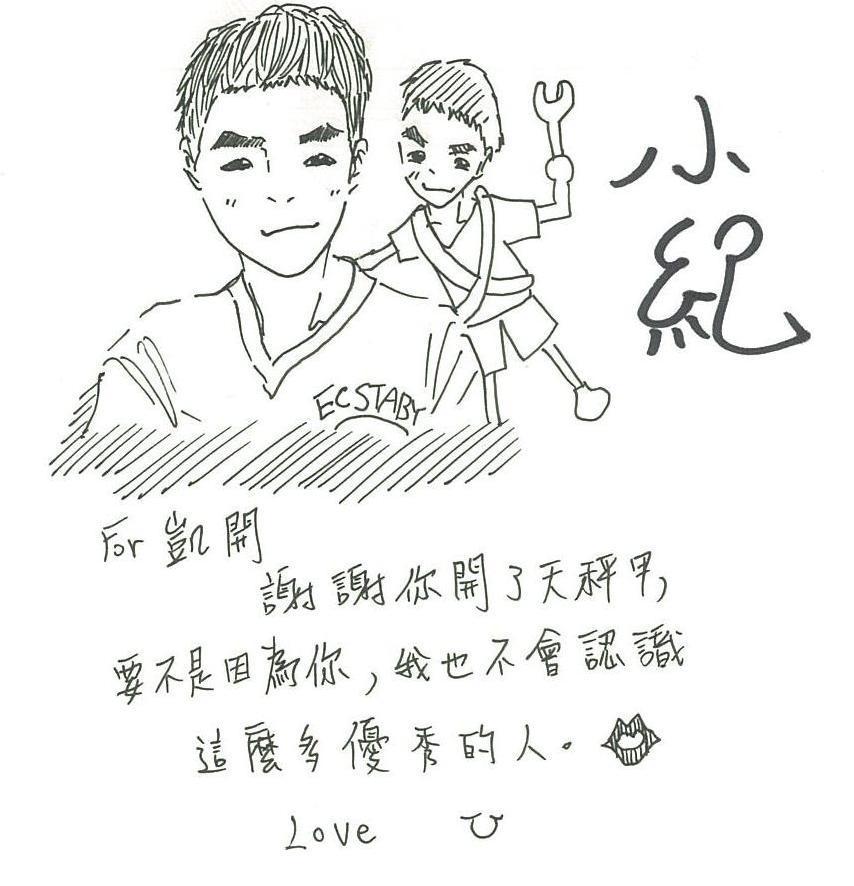 小
紀
ECSTABY
For 凱開
謝謝你開了天秤甲,
要不是因為你,我也不會認識
這麼多優秀的人。
Love